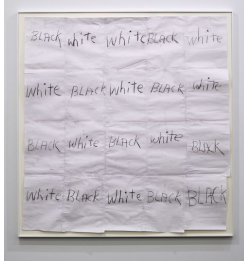 BLACK white white BLACK white
white BLACK white BLACK white
BLACK white BLACK white BLACK
white BLACK white BLACK BLACK